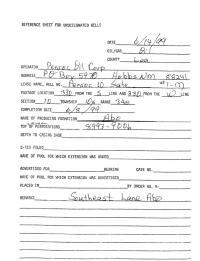 REFERENCE SHEET FOR UNDESIGNATED WELLS
DATE 6/14/99
OIL/GAS Oil
COUNTY Lea
OPERATOR Penroc Oil Corp
ADDRESS PO Box 5970 Hobbs NM 88241
LEASE NAME, WELL NO. Penroc 10 State
FOOTAGE LOCATION 330 FROM THE S LINE AND 330 FROM THE W LINE
SECTION 10 TOWNSHIP 10s RANGE 34e
COMPLETION DATE 6/8/99
NAME OF PRODUCING FORMATION Abo
TOP OF PERFORATIONS 8993-9006
DEPTH TO CASING SHOE
C-123 FILED
NAME OF POOL FOR WHICH EXTENSION WAS ASKED
ADVERTISED FOR HEARING CASE NO.
NAME OF POOL FOR WHICH EXTENSION WAS ADVERTISED
PLACED IN BY ORDER NO. R-
REMARKS Southeast Lane Abo